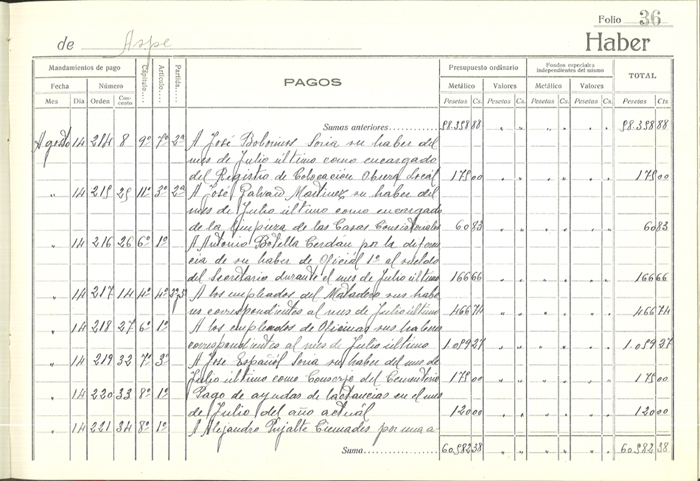 Folio 36
de Aspe Haber
Mandamientos de pago Capítulo.... Artículo.... Partida.... PAGOS Presupuesto ordinario Fondos especiales independientes del mismo TOTAL
Fecha Número Metálico Valores Metálico Valores
Mes Día Orden Concepto Pesetas Cs. Pesetas Cs. Pesetas Cs. Pesetas Cs. Pesetas Cts
Sumas anteriores 98.398 88 " " " " " " 98.398 88
Agosto 14 214 8 9º 7º 2ª A José Soria su haber del
mes de Julio último como encargado
del Registro de Colocación Obrera Local 175 00 175 00
" 14 215 25 11º 3º 2ª A José Galvañ Martinez su haber del
mes de Julio último como encargado
de la limpieza de las Casas Consistoriales 60 83 60 83
" 14 216 26 6º 1º A Antonio Botella Cerdán por la diferen
cia de su haber de Oficial 1º al sueldo
del Secretario durante el mes de Julio último 166 66 166 66
" 14 217 14 4º 4º A los empleados del Matadero sus habe
res correspondientes al mes de Julio último 466 74 466 74
" 14 218 27 6º 1º A los empleados de Oficinas sus haberes
correspondientes al mes de Julio último 1.059 27 1.059 27
" 14 219 32 7º 3º A Jose Español Soria su haber del mes de
Julio último como Conserje del Cementerio 175 00 175 00
" 14 220 33 8º 1º Pago de ayudas de lactancias en el mes
de Julio del año actual 120 00 120 00
" 14 221 34 8º 1º A Alejandro Pujalte Cremades por una a
Suma 60982 38 " " " " " " 60982 38